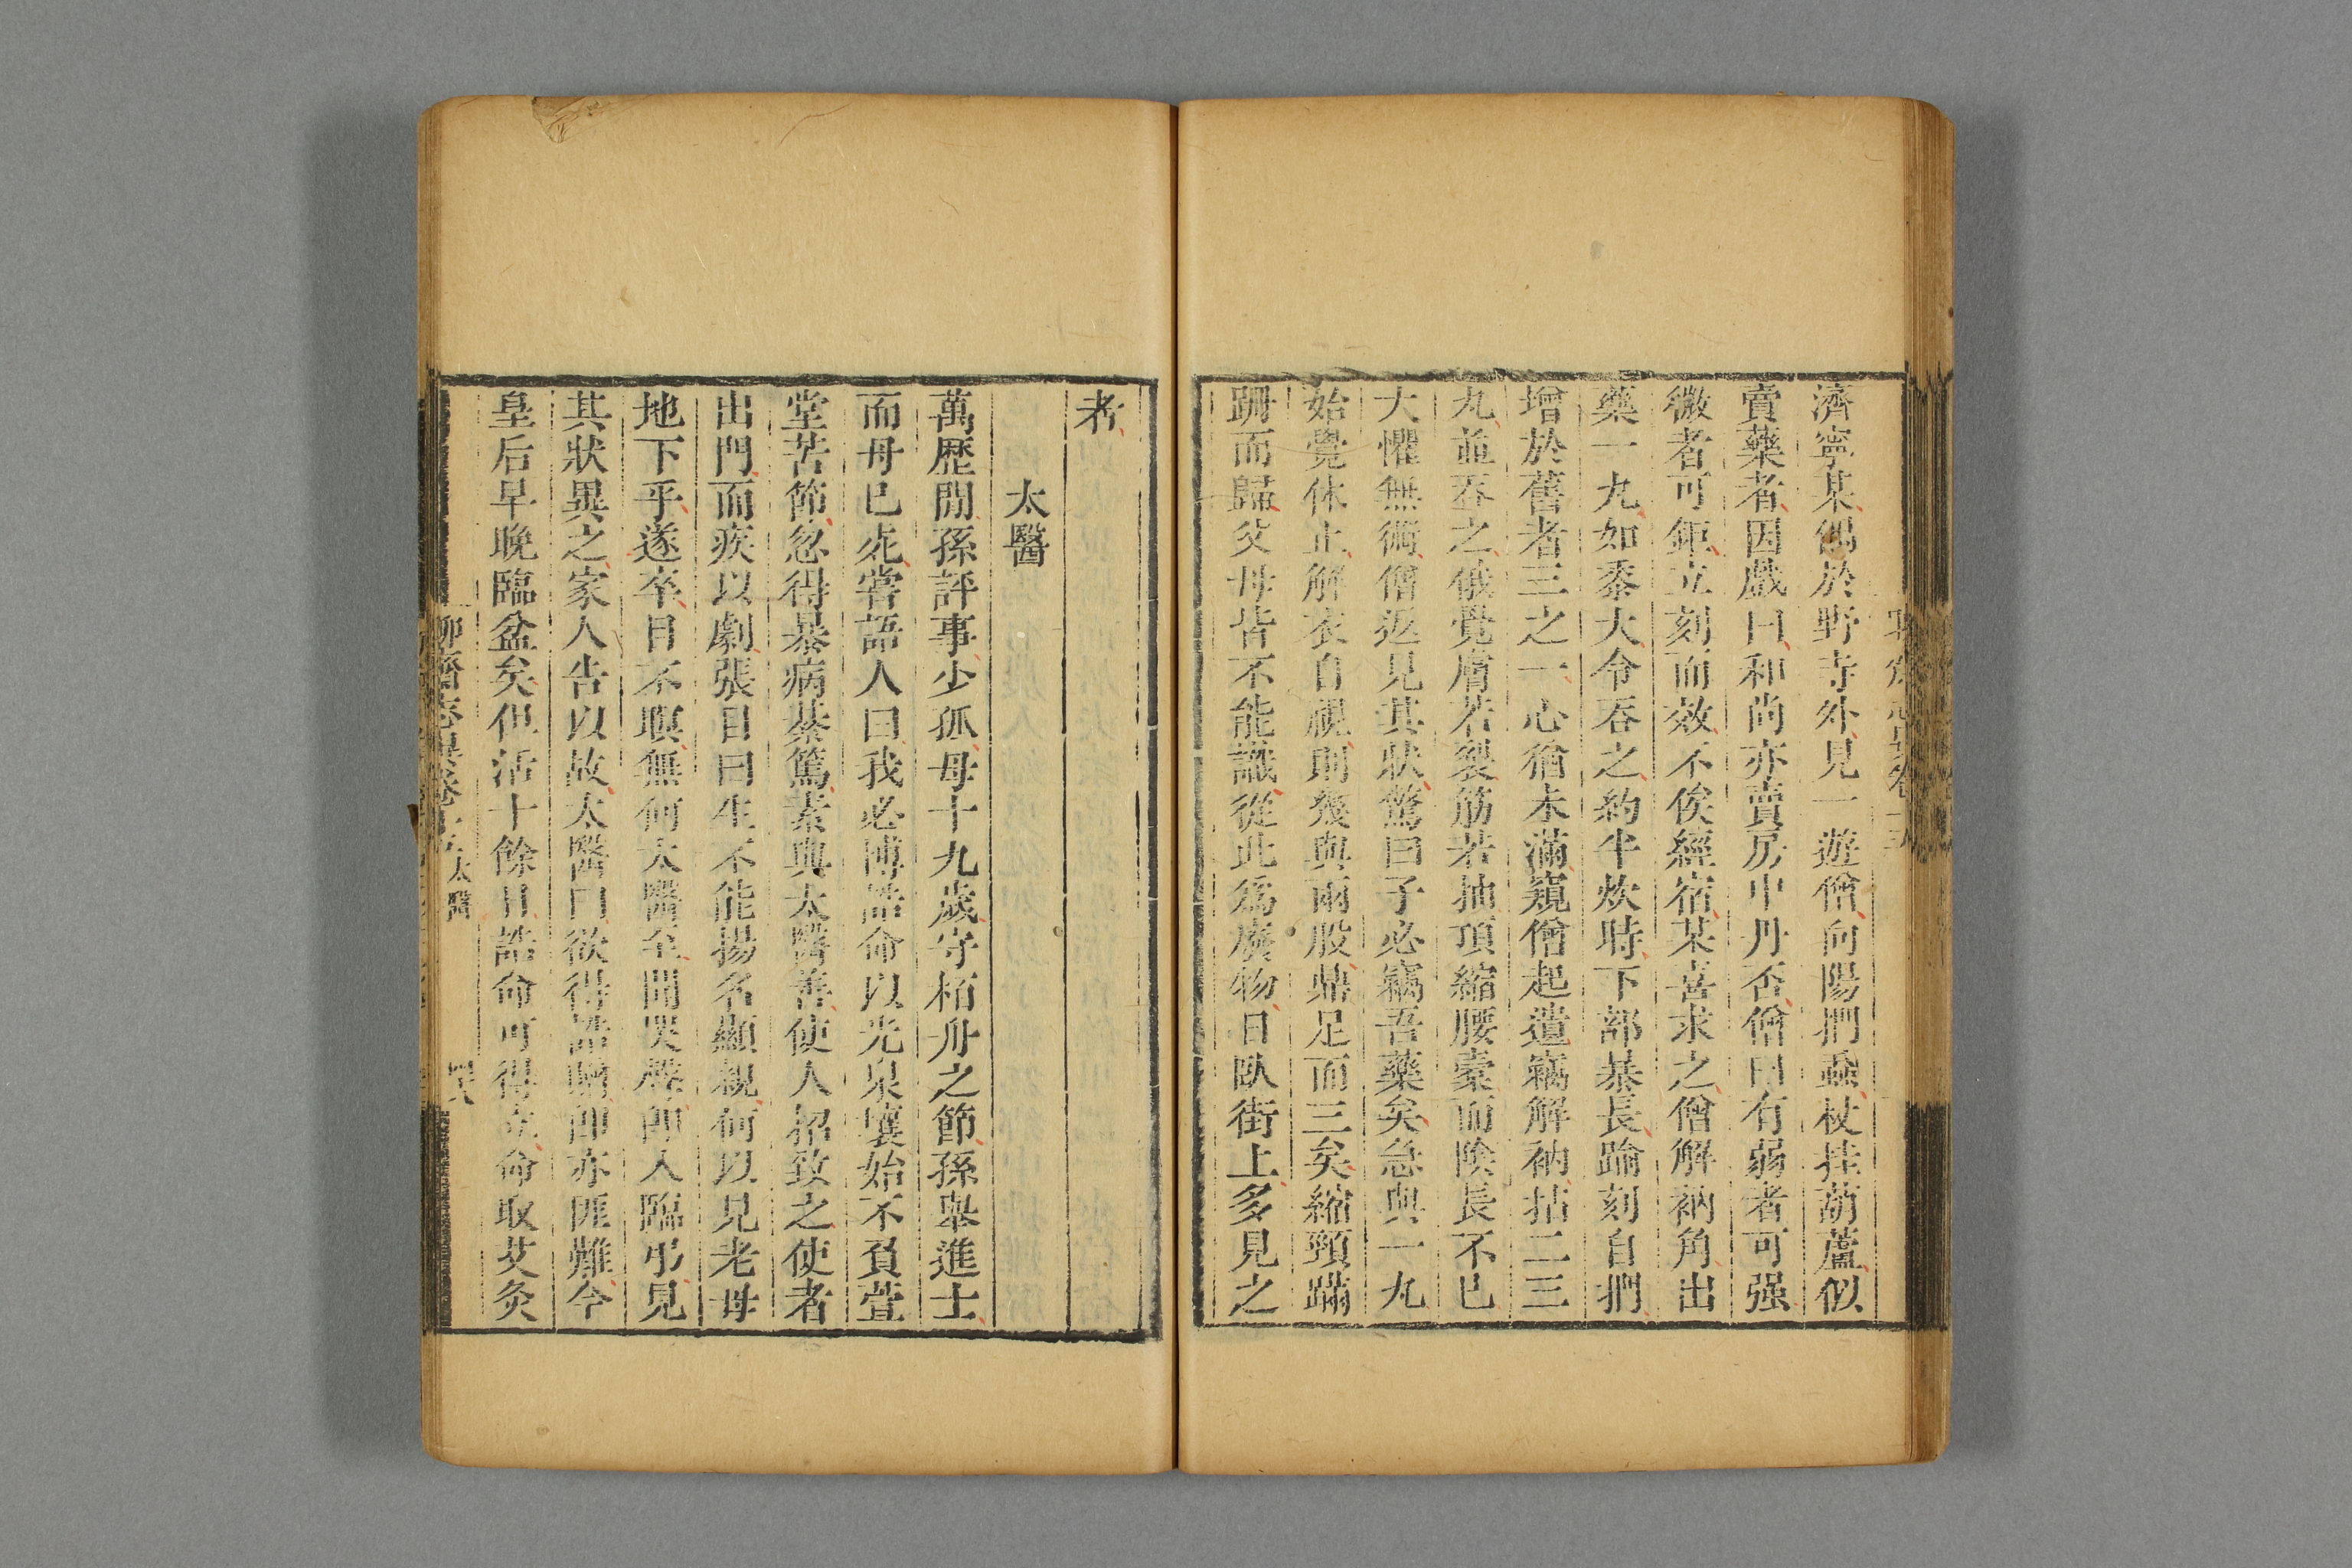 濟寧某偶於野寺外見一遊僧向陽捫蝨杖挂葫蘆似
賣藥者因戲曰和尚亦賣房中丹否僧曰有弱者可强
微者可鉅立刻而效不俟經宿某喜求之僧解衲角出
藥一丸如黍大令吞之約半炊時下部暴長踰刻自捫
增於舊者三之一心猶未滿窺僧起遺竊解衲拈二三
丸並吞之俄覺膚若裂筋若抽項縮腰橐而陰長不已
大懼無術僧返見其狀驚曰子必竊吾藥矣急與一丸
始覺休止解衣自視則幾與兩股鼎足而三矣縮頸蹣
跚而歸父母皆不能識從此爲廢物日臥街上多見之
者
太醫
萬歷間孫評事少孤母十九歲守栢舟之節孫舉進士
而母已死嘗語人曰我必博誥命以光泉壤始不負萱
堂苦節忽得暴病綦篤素與太醫善使人招致之使者
出門而疾以劇張目曰生不能揚名顯親何以見老母
地下乎遂卒目不瞑無何太醫至聞哭聲卽入臨弔見
其狀異之家人告以故太醫曰欲得誥贈卽亦匪難今
皇后早晚臨盆矣但活十餘日誥命可得立命取艾灸
太醫